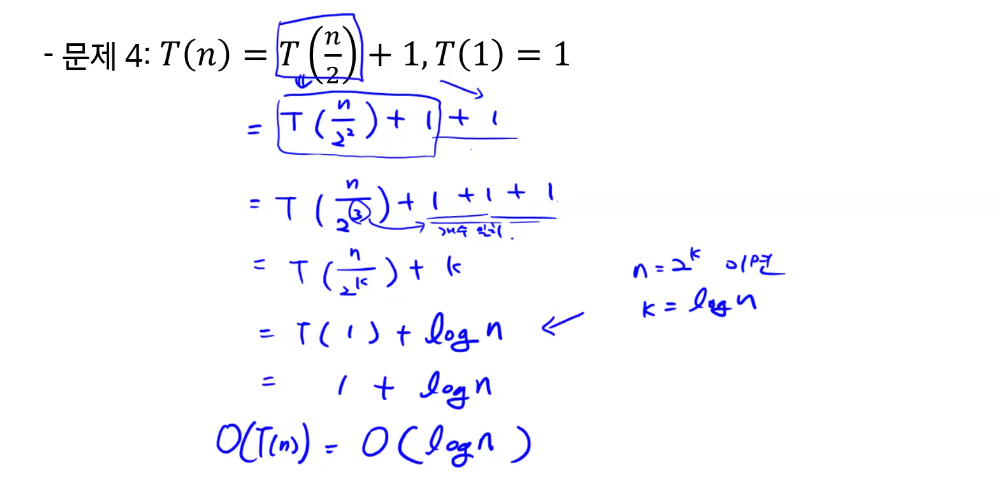 - 문제 4: T(n) = T(n/2) + 1, T(1) = 1
= T(n/2²) + 1 + 1
= T(n/2³) + 1 + 1 + 1
개수 일치.
= T(n/2ᵏ) + k
n = 2ᵏ 이면
k = log n
= T(1) + log n
= 1 + log n
O(T(n)) = O(log n)